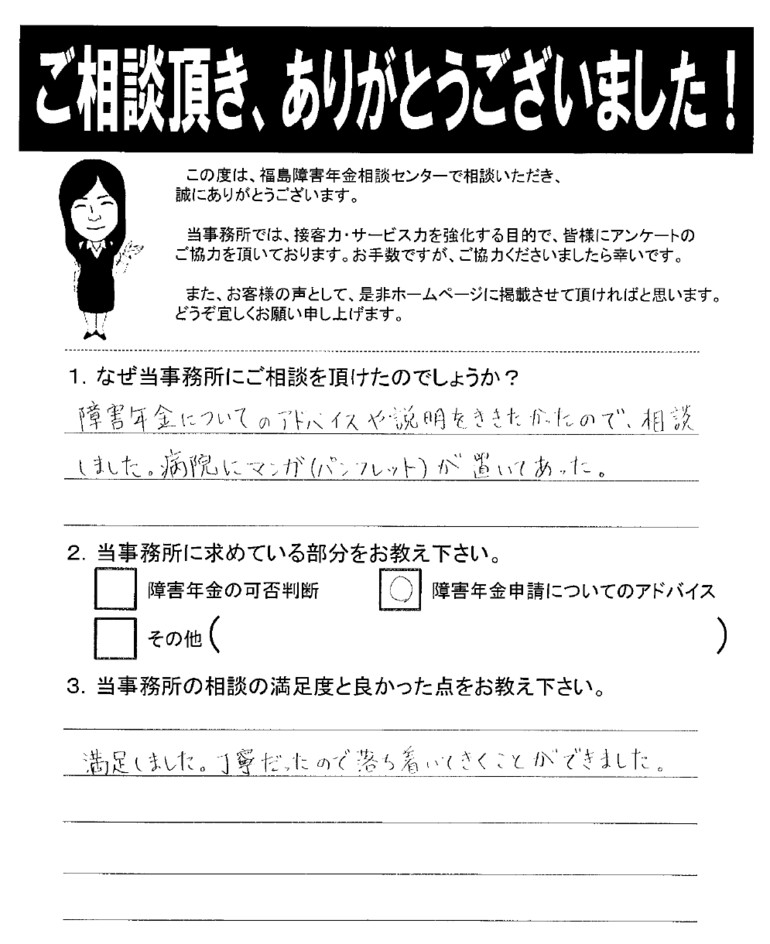 ご相談頂き、ありがとうございました！
この度は、福島障害年金相談センターで相談いただき、
誠にありがとうございます。
当事務所では、接客力・サービス力を強化する目的で、皆様にアンケートの
ご協力を頂いております。お手数ですが、ご協力くださいましたら幸いです。
また、お客様の声として、是非ホームページに掲載させて頂ければと思います。
どうぞ宜しくお願い申し上げます。
1. なぜ当事務所にご相談を頂けたのでしょうか？
障害年金についてのアドバイスや説明をききたかったので、相談
しました。病院にマンガ(パンフレット)が置いてあった。
2. 当事務所に求めている部分をお教え下さい。
障害年金の可否判断 ○ 障害年金申請についてのアドバイス
その他（ ）
3. 当事務所の相談の満足度と良かった点をお教え下さい。
満足しました。丁寧だったので落ち着いてきくことができました。